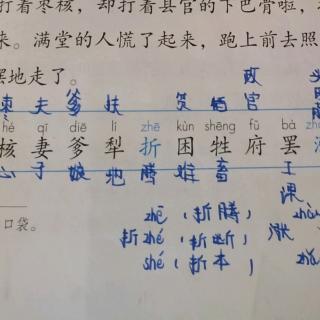 打着枣核，却打着县官的下巴骨啦，
来。满堂的人慌了起来，跑上前去照
罢地走了。
政
枣 夫 爹 扶 官
hé qī diē lí zhē kùn shēng fǔ bà
核 妻 爹 犁 折 困 牲 府 罢
心 子 娘 地 腾 难 畜 工
zhē（折腾）
口袋。 折 zhé（折断） 涨
shé（折本）